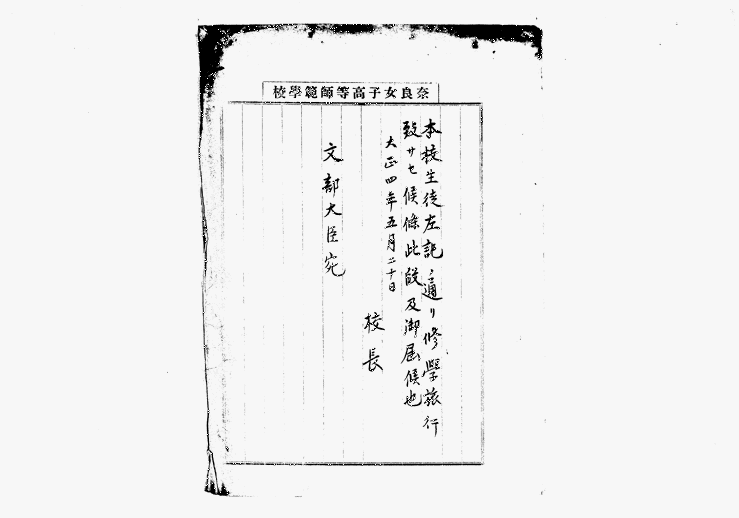 校學範師等高子女良奈
本校生徒左記ノ通リ修學旅行
致サセ候條此段及御届候也
大正四年五月二十日
校長
文部大臣宛